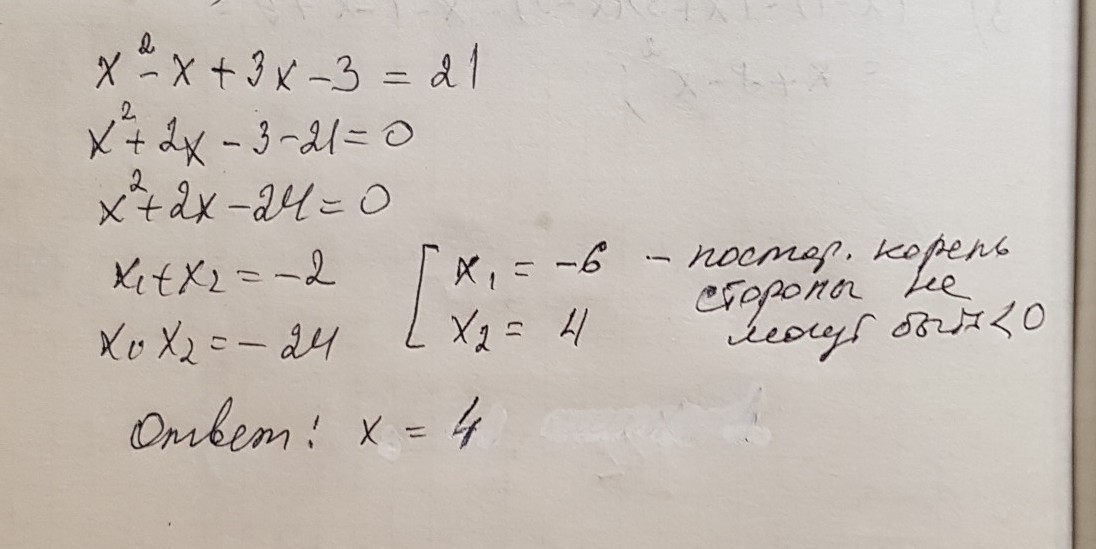 x² - x + 3x - 3 = 21
x² + 2x - 3 - 21 = 0
x² + 2x - 24 = 0
x₁ + x₂ = -2
x₁ · x₂ = - 24
[ x₁ = -6 - постор. корень
стороны не
могут быть < 0
x₂ = 4
Ответ: x = 4